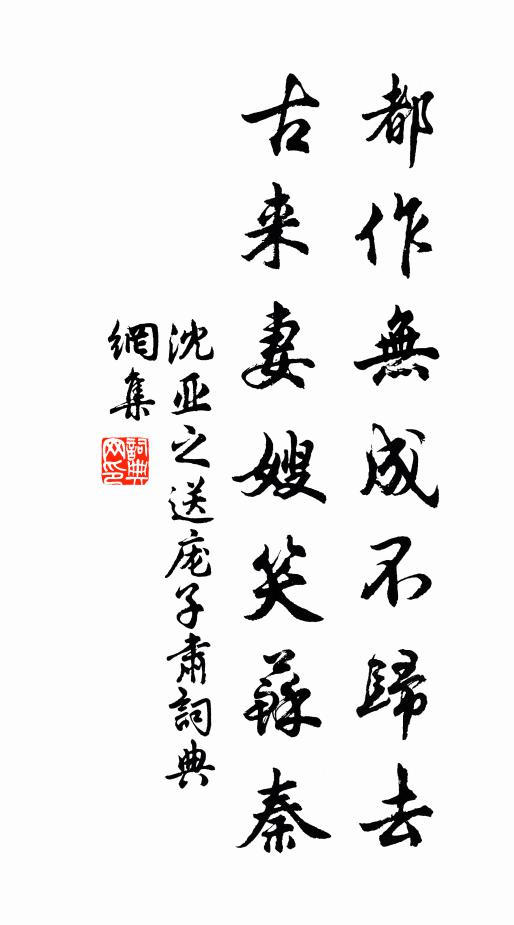 都作無成不歸去
古来妻嫂笑蘇秦
沈亚之送庞子肃詞典
網集
詞典
网印